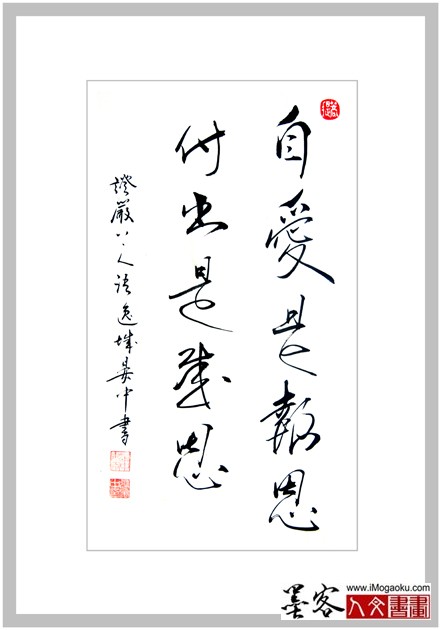 自愛是報恩
付出是感恩
證嚴上人語逸城吳中書
墨客
www.iMogaoku.com
人文書畫